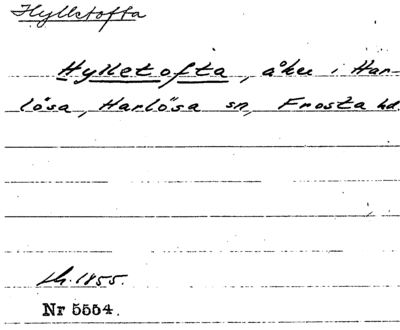 Hylletofta
Hylletofta, åker i Har-
lösa, Harlösa sn, Frosta hd.
1855.
Nr 5554.